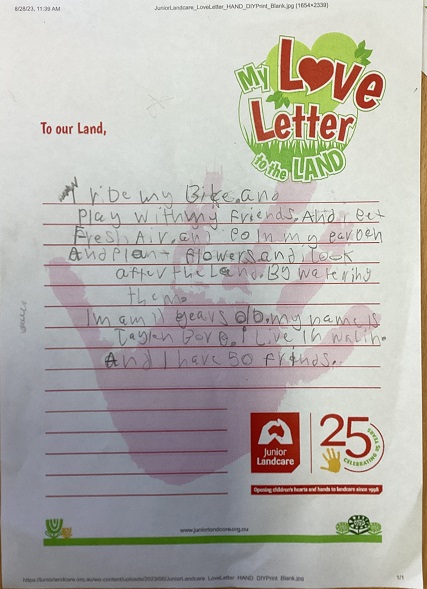 8/28/23, 11:39 AM
JuniorLandcare_LoveLetter_HAND_DIYPrint_Blank.jpg (1654×2339)
My Love
Letter
to the LAND
To our Land,
I ribe my Bike. and
Play with my Friends. And get
Fresh Air. and go In my garden
And Plant flowers and i look
after the Land. By watering
them.
Im am 11 years old. my name is
I Live in
And I have 50 friends.
Junior
Landcare
25
CELEBRATING
YEARS
Opening children's hearts and hands to landcare since 1998
www.juniorlandcare.org.au
1/1